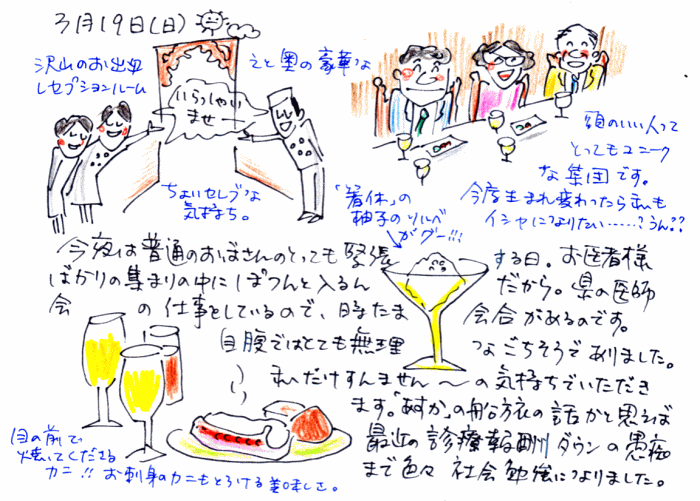 3月19日(日)
沢山のお出迎え
レセプションルーム
と奥の豪華な
いらっしゃい
ませー
ちょいセレブな
気持ち。
頭のいい人って
とってもユニーク
な集団です。
今度生まれ変わったら私も
イシャになりたい……?うん??
「箸休」の
柚子のソルベ
がグー!!!
今夜は普通のおばさんのとっても緊張する日。お医者様
ばかりの集まりの中にぽつんと入るんだから。県の医師
会の仕事をしているので、時たま会合があるのです。
自腹ではとても無理なごちそうでありました。
私だけすんません～の気持ちでいただき
ます。「あすか」の船旅の話かと思えば
最近の診療報酬ダウンの愚痴
まで色々社会勉強になりました。
目の前で
焼いてくださる
カニ!!お刺身のカニもとろける美味しさ。